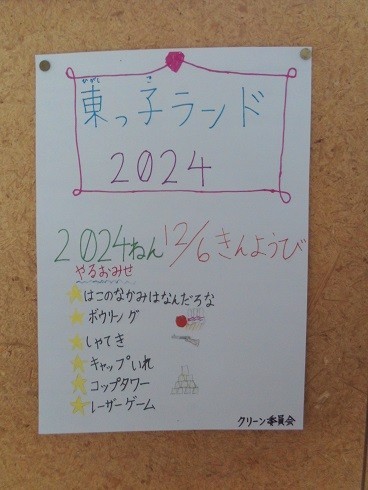 東っ子ランド
2024
2024ねん12/6きんようび
やるおみせ
はこのなかみはなんだろな
ボウリング
しゃてき
キャップいれ
コップタワー
レーザーゲーム
クリーン委員会